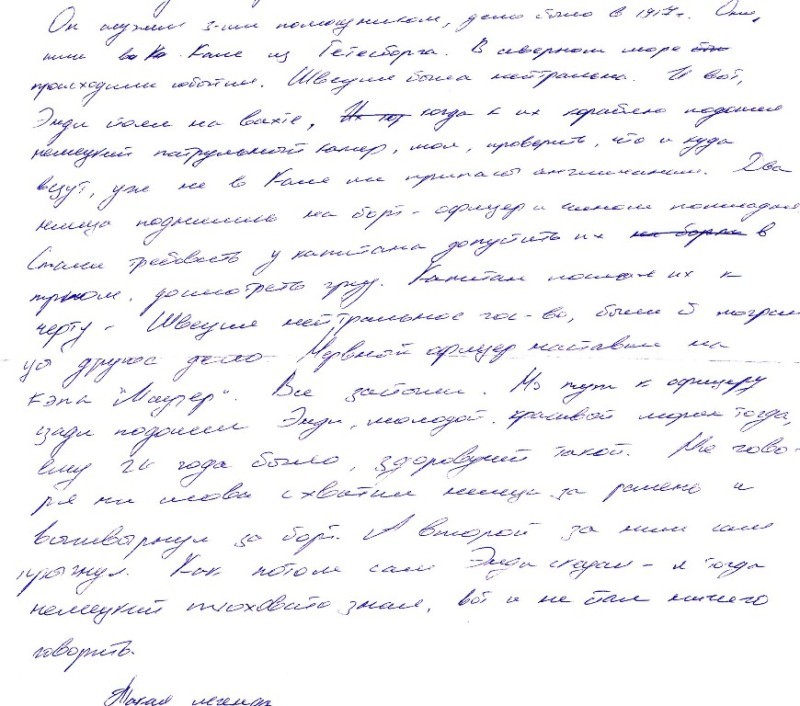 Он служил 3-им помощником, дело было в 1917 г. Они,
шли в Кале из Гетеборга. В северном море
происходили события. Швеция была нейтральна. И вот,
Энди стоял на вахте, когда к их кораблю подошел
немецкий патрульный катер, мол, проверить, что и куда
везут, уж не в Кале ли припасы англичанам. Два
немца поднялись на борт - офицер и
Стали требовать у капитана допустить их в
трюм, досмотреть груз. Капитан послал их к
черту - Швеция нейтральное гос-во, были б
другое дело. Нервный офицер наставил на
кэпа "Маузер". Все застыли. Но тут к офицеру
сзади подошел Энди, молодой красивой моряк тогда,
ему 24 года было, здоровущий такой. Не гово-
ря ни слова схватил немца за ремень и
вышвырнул за борт. А второй за ним сам
прыгнул. Как потом сам Энди сказал - я тогда
немецкий плоховато знал, вот и не стал ничего
говорить.
Такая легенда